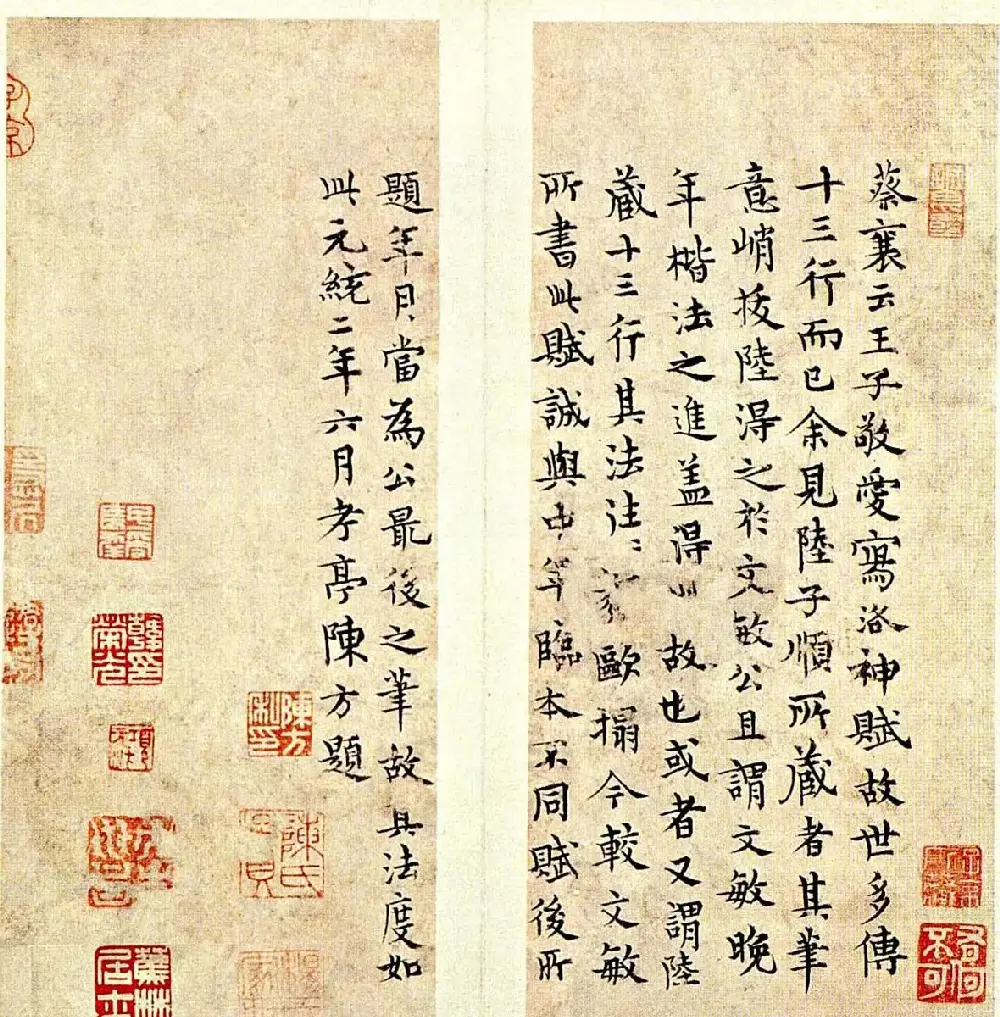 蔡襄云王子敬愛寫洛神賦故世多傳
十三行而已余見陸子順所藏者其筆
意峭拔陸得之於文敏公且謂文敏晚
年楷法之進盖得此故也或者又謂陸
藏十三行其法注〻歐搨今較文敏
所書此賦誠與中年臨本不同賦後所
題年月當為公最後之筆故其法度如
此元統二年六月孝亭陳方題
陳方私印
陳氏